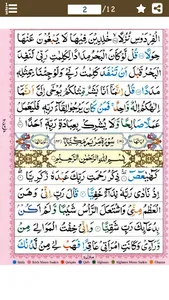 2 /12
الْفِرْدَوْسِ نُزُلًا خٰلِدِيْنَ فِيْهَا لَا يَبْغُوْنَ عَنْهَا
حِوَلًا قُلْ لَّوْ كَانَ الْبَحْرُ مِدَادًا لِّكَلِمٰتِ رَبِّيْ لَنَفِدَ
الْبَحْرُ قَبْلَ اَنْ تَنْفَدَ كَلِمٰتُ رَبِّيْ وَلَوْ جِئْنَا بِمِثْلِهٖ
مَدَدًا قُلْ اِنَّمَاۤ اَنَا بَشَرٌ مِّثْلُكُمْ يُوْحٰۤى اِلَيَّ اَنَّمَاۤ
اِلٰهُكُمْ اِلٰهٌ وَّاحِدٌ فَمَنْ كَانَ يَرْجُوْا لِقَآءَ رَبِّهٖ
فَلْيَعْمَلْ عَمَلًا صَالِحًا وَّلَا يُشْرِكْ بِعِبَادَةِ رَبِّهٖۤ اَحَدًا
بِسْمِ اللّٰهِ الرَّحْمٰنِ الرَّحِيْمِ
كٓهٰيٰعٓصٓ ذِكْرُ رَحْمَتِ رَبِّكَ عَبْدَهٗ زَكَرِيَّا
اِذْ نَادٰى رَبَّهٗ نِدَآءً خَفِيًّا قَالَ رَبِّ اِنِّيْ وَهَنَ
الْعَظْمُ مِنِّيْ وَاشْتَعَلَ الرَّاْسُ شَيْبًا وَّلَمْ اَكُنْ